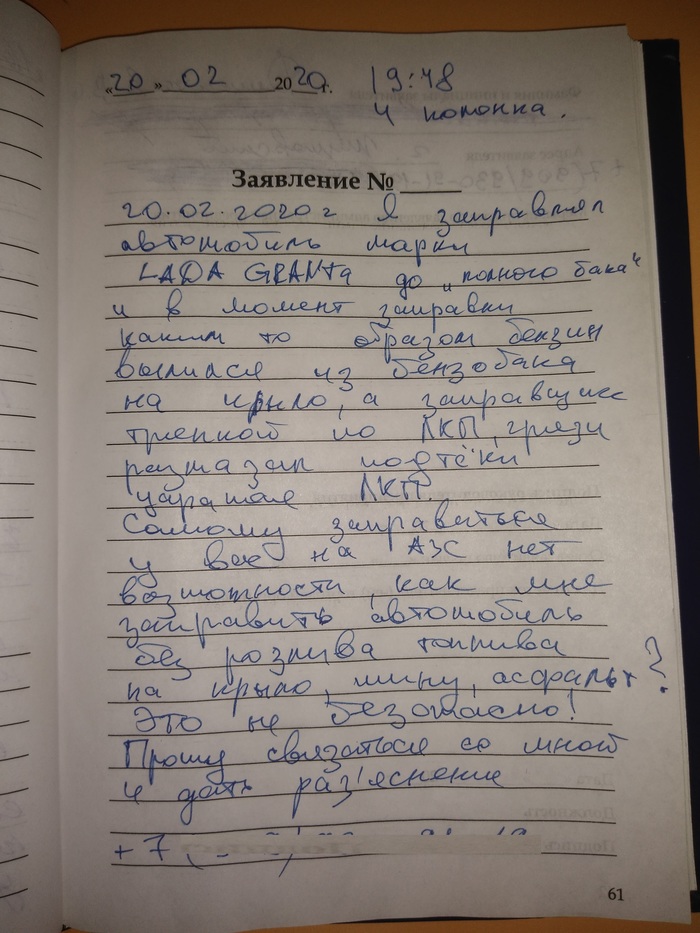 «20» 02 2020г. 19:48
4 колонка.
Заявление №
20.02.2020г Я заправлял
автомобиль марки
LADA GRANTa до „полного бака“
и в момент заправки
каким то образом бензин
вылился из бензобака
на крыло, а заправщик
тряпкой по ЛКП, грязи
размазал подтёки
царапая ЛКП.
Самому заправиться
у вас на АЗС нет
возможности, как мне
заправить автомобиль
без розлива топлива
на крыло, шину, асфальт?
Это не безопасно!
Прошу связаться со мной
и дать раз'яснение
+7 (
61